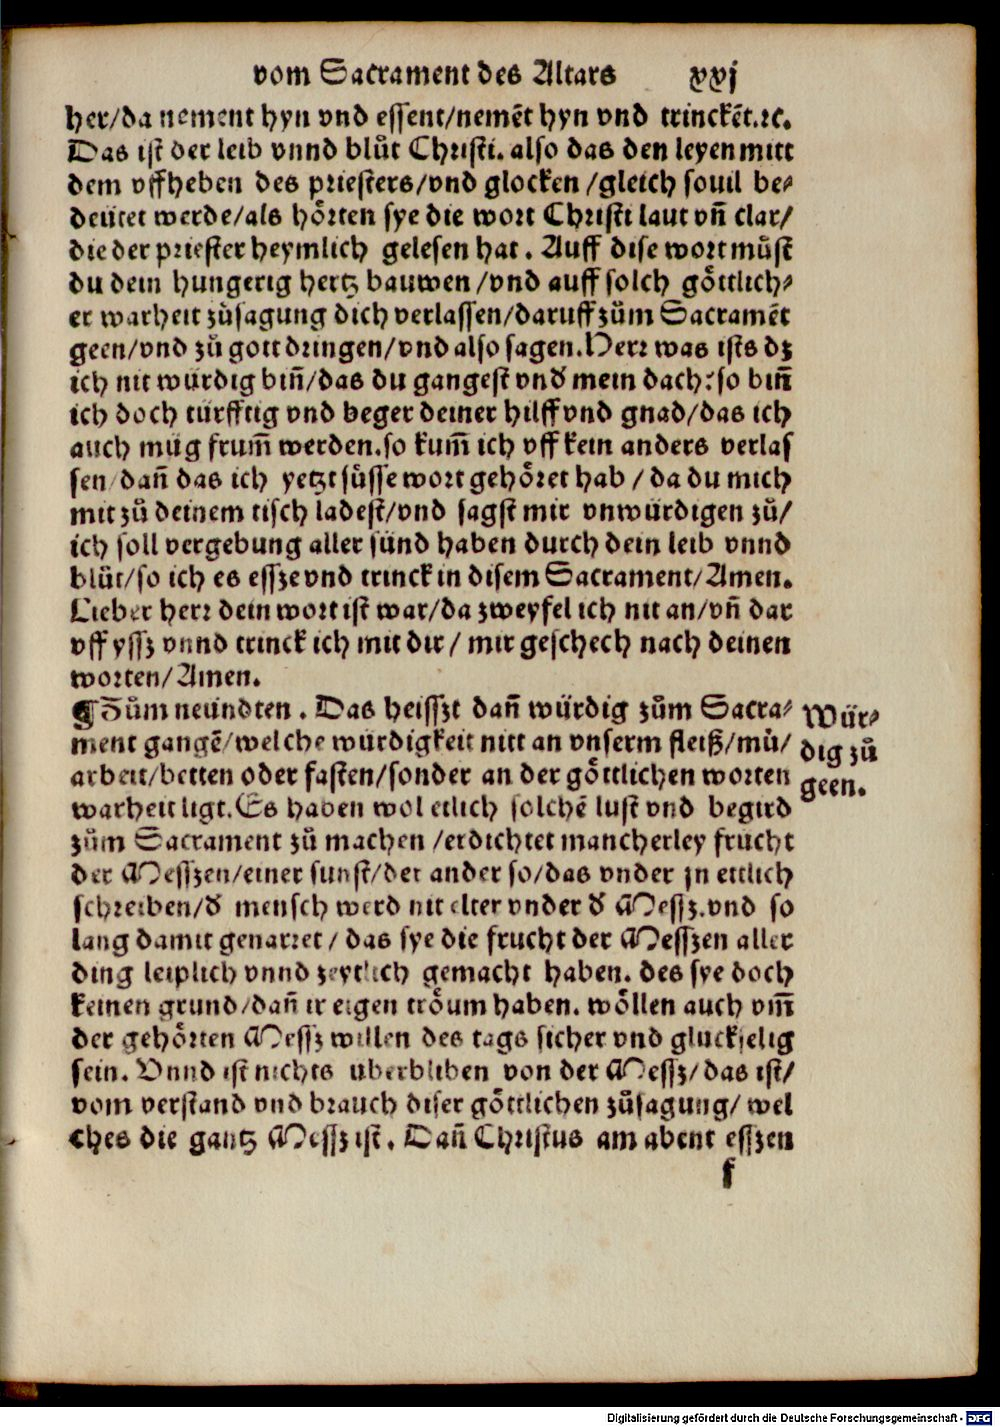 vom Sacrament des Altars xxj
her/da nement hyn vnd essent/nemēt hyn vnd trinckēt.ꝛc.
Das ist der leib vnnd blůt Christi. also das den leyen mitt
dem vffheben des priesters/vnd glocken/gleich souil be⸗
deütet werde/als hörten sye die wort Christi laut vñ clar/
die der priester heymlich gelesen hat. Auff dise wort můst
du dein hungerig hertz bauwen/vnd auff solch göttlich⸗
er warheit zůsagung dich verlassen/daruff zům Sacramēt
geen/vnd zů gott dringen/vnd also sagen. Herr was ists dz
ich nit würdig biñ/das du gangest vnď mein dach: so biñ
ich doch türfftig vnd beger deiner hilff vnd gnad/das ich
auch müg frum̄ werden. so kum̄ ich vff kein anders verlas
sen/dañ das ich yetzt süsse wort gehöret hab/da du mich
mit zů deinem tisch ladest/vnd sagst mir vnwürdigen zů/
ich soll vergebung aller sünd haben durch dein leib vnnd
blůt/so ich es essze vnd trinck in disem Sacrament/Amen.
Lieber herr dein wort ist war/da zweyfel ich nit an/vñ dar
vff yssz vnnd trinck ich mit dir/mir geschech nach deinen
worten/Amen.
¶Zům neündten. Das heisszt dañ würdig zům Sacra⸗
ment gangē/welche würdigkeit nitt an vnserm fleiß/mü/
arbeit/betten oder fasten/sonder an der göttlichen worten
warheit ligt. Es haben wol etlich solchē lust vnd begird
zům Sacrament zů machen/erdichtet mancherley frucht
der Messzen/einer sunst/der ander so/das vnder jn ettlich
schreiben/ď mensch werd nit elter vnder ď Messz. vnd so
lang damit genarret/das sye die frucht der Messzen aller
ding leiplich vnnd zeytlich gemacht haben. des sye doch
keinen grund/dañ ir eigen tröum haben. wöllen auch vm̄
der gehörten Messz willen des tags sicher vnd gluckselig
sein. Vnnd ist nichts überbliben von der Messz/das ist/
vom verstand vnd brauch diser göttlichen zůsagung/wel
ches die gantz Messz ist. Dañ Christus am abent esszen
f
Wür⸗
dig zů
geen.
Digitalisierung gefördert durch die Deutsche Forschungsgemeinschaft - DFG